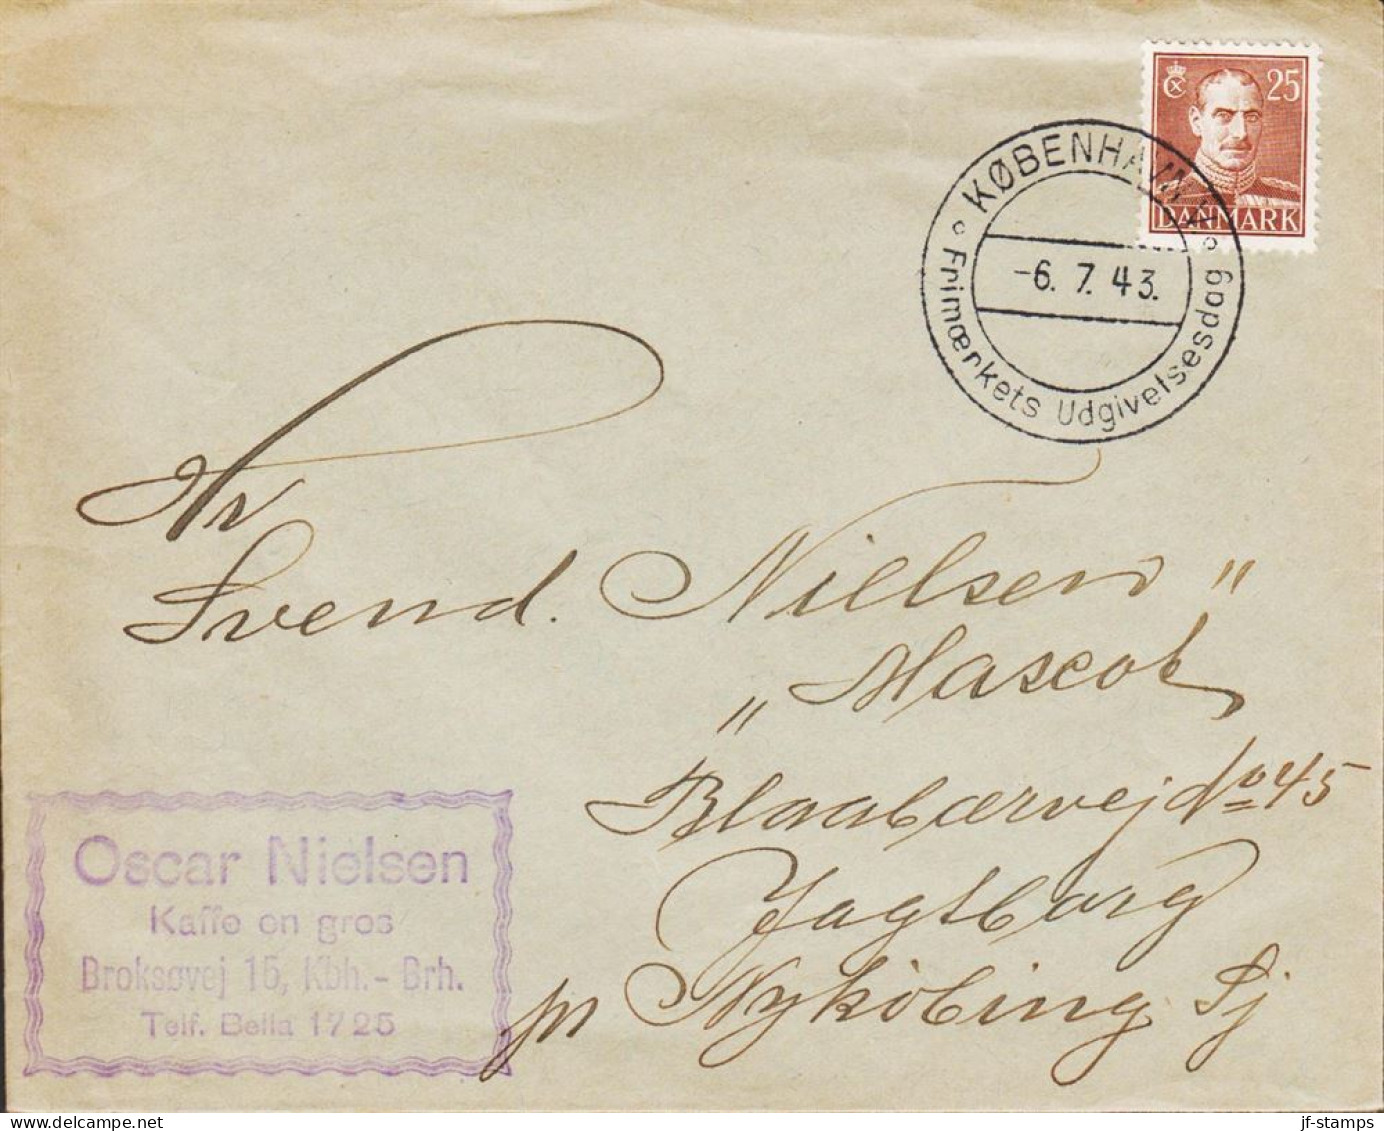 25
DANMARK
KØBENHAVN K.
-6. 7. 43.
Frimærkets Udgivelsesdag
Hr
Svend. Nielsen
"Mascot"
Blaabærvej No 45
Jagtborg
pr Nykøbing Sj
Oscar Nielsen
Kaffe en gros
Broksøvej 15, Kbh.-Brh.
Telf. Bella 1725
delcampe.net
jf-stamps